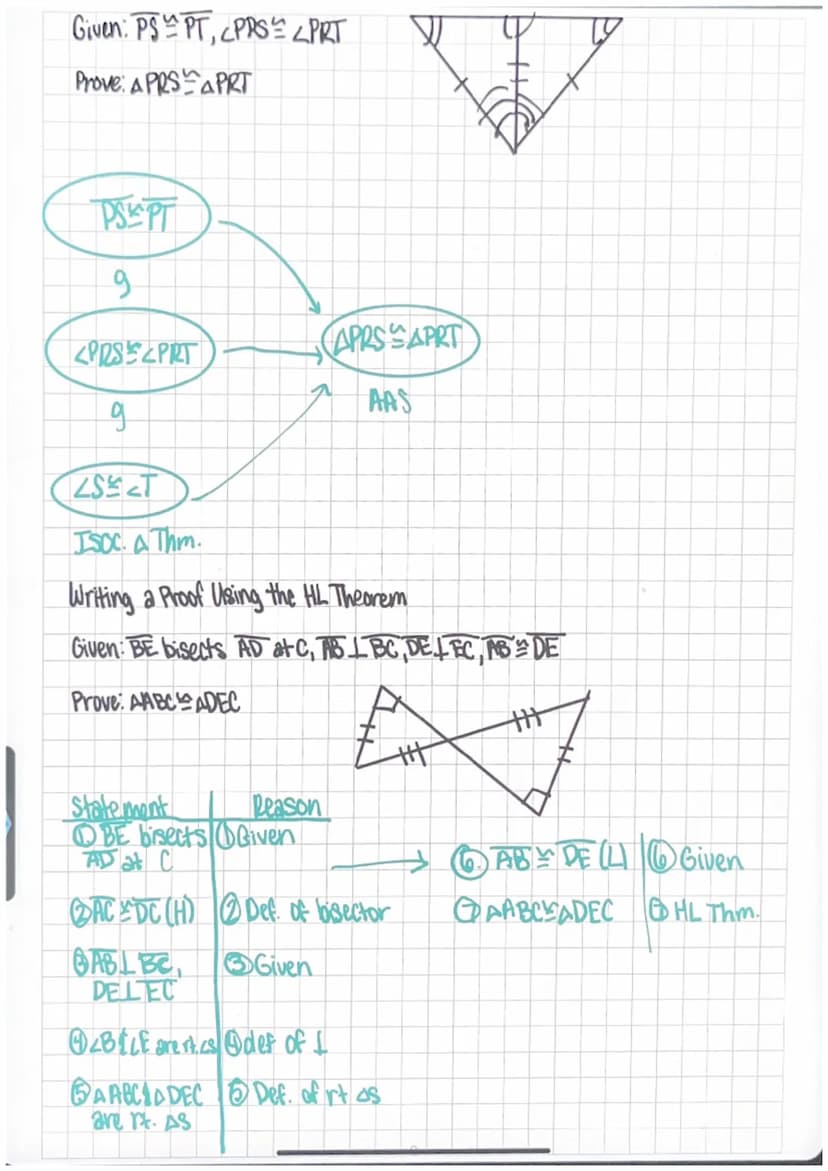 Given: PS ≅ PT, ∠PRS ≅ ∠PRT
Prove: △PRS ≅ △PRT
PS ≅ PT
g
∠PRS ≅ ∠PRT
g
△PRS ≅ △PRT
AAS
∠S ≅ ∠T
ISOC. △ Thm.
Writing a Proof Using the HL Theorem
Given: BE bisects AD at C, AB ⊥ BC, DE ⊥ EC, AB ≅ DE
Prove: △ABC ≅ △DEC
Statement
Reason
① BE bisects AD at C
① Given
② AC ≅ DC (H)
② Def. of bisector
③ AB ⊥ BC, DE ⊥ EC
③ Given
④ ∠B & ∠E are rt. ∠s
④ def of ⊥
⑤ △ABC & △DEC are rt. △s
⑤ Def. of rt △s
⑥. AB ≅ DE (L)
⑥ Given
⑦ △ABC ≅ △DEC
⑦ HL Thm.